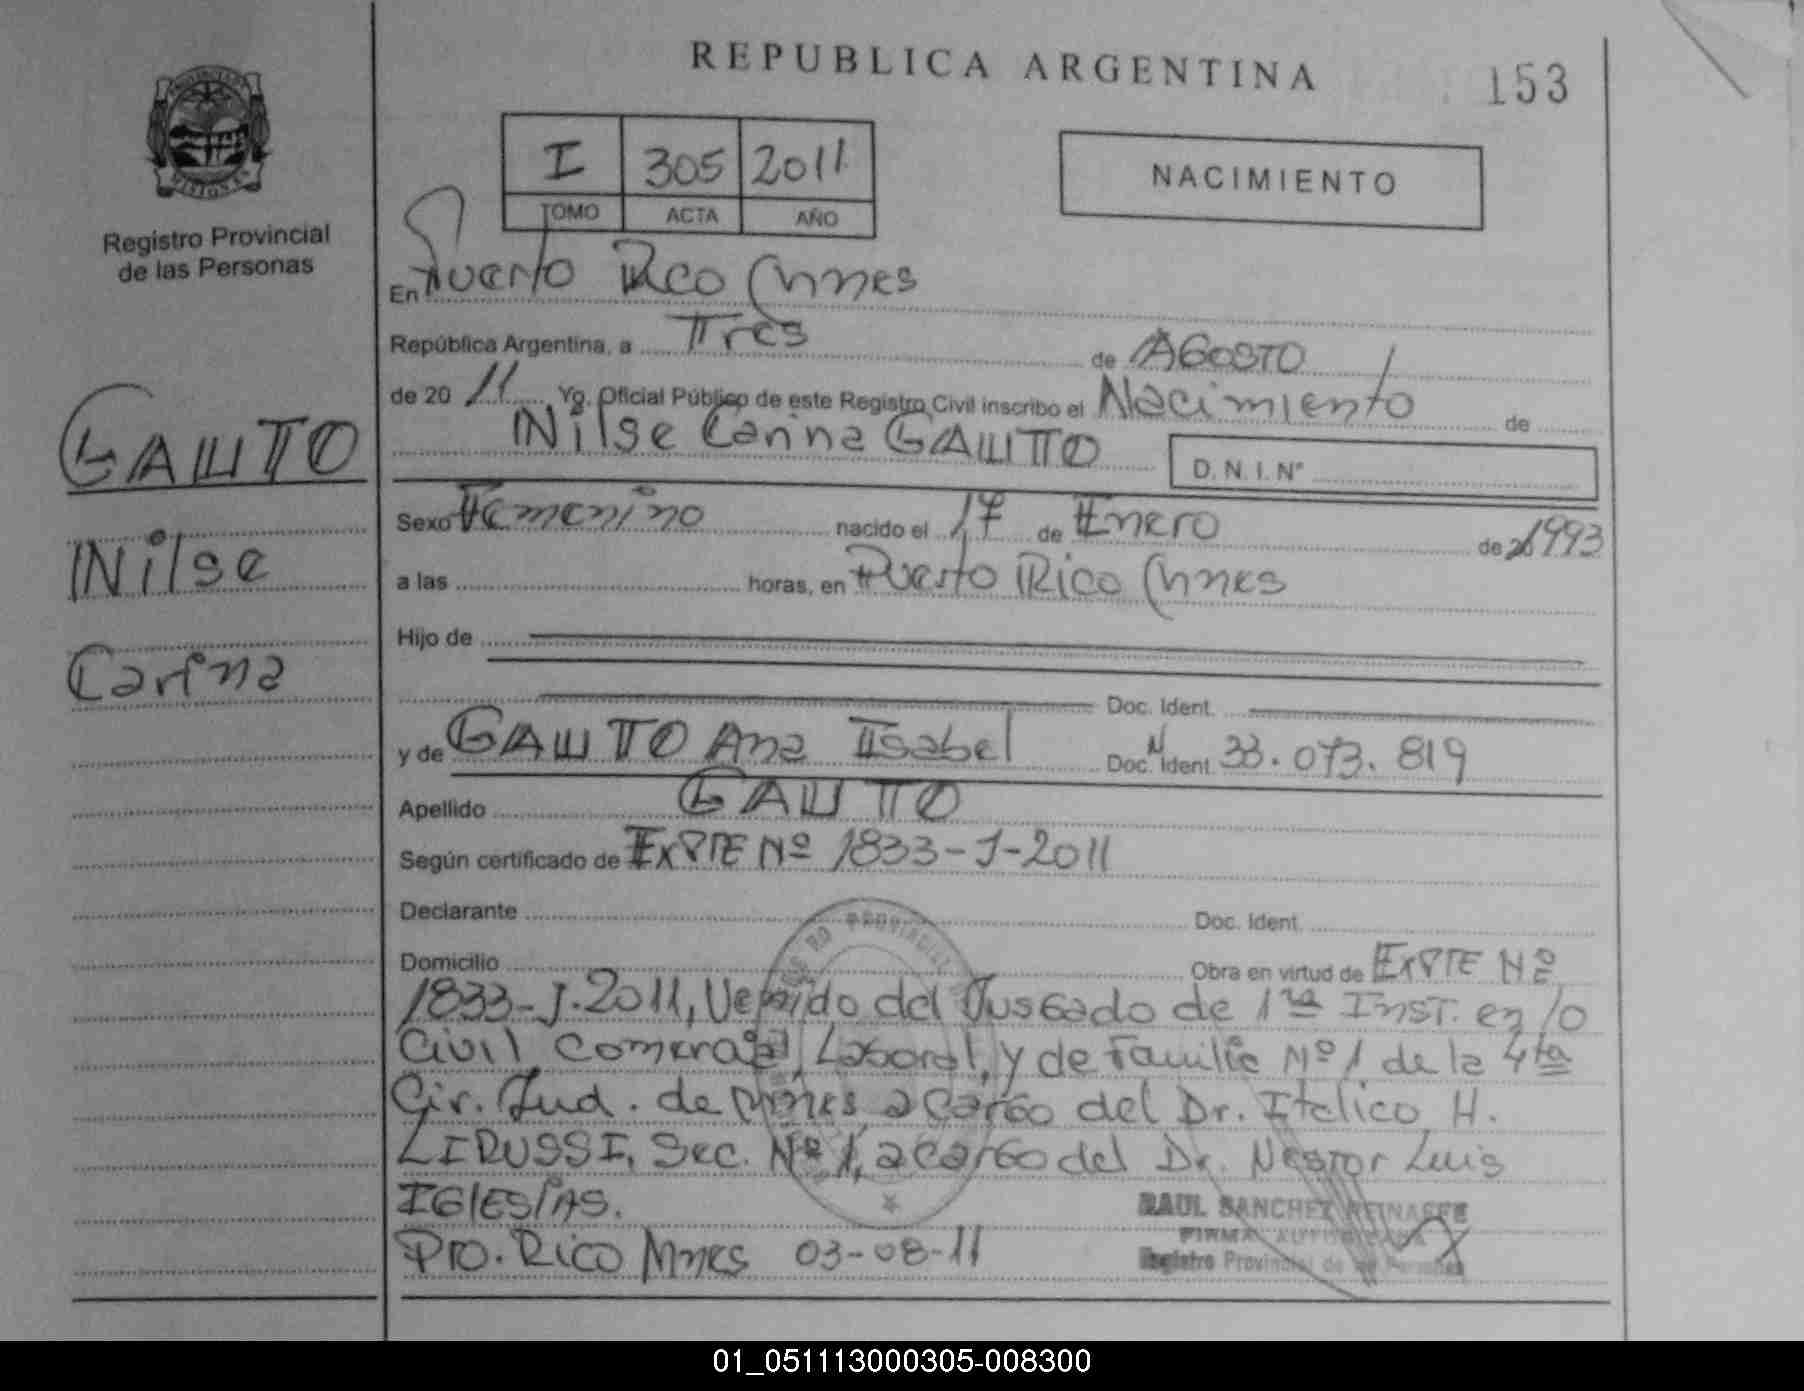 REPUBLICA ARGENTINA
153
PROVINCIA DE MISIONES
Registro Provincial
de las Personas
I 305 2011
TOMO ACTA AÑO
NACIMIENTO
En Puerto Rico Mnes
República Argentina, a Tres de AGOSTO
de 20 11 Yo, Oficial Público de este Registro Civil inscribo el Nacimiento de
Nilse Carina GAUTO D.N.I. Nº
Sexo Femenino nacido el 17 de Enero de 20 1993
a las horas, en Puerto Rico Mnes
Hijo de
Doc. Ident.
y de GAUTO Ana Isabel Doc. Ident. N 33.073.819
Apellido GAUTO
Según certificado de EXPTE Nº 1833-J-2011
Declarante Doc. Ident.
Domicilio Obra en virtud de EXPTE Nº
1833-J-2011, Venido del Jusgado de 1ra INST. en lo
Civil Comercial, Laboral, y de Familia Nº 1 de la 4ta
Cir. Jud. de Mnes, a cargo del Dr. Italico H.
LIRUSSI, Sec. Nº 1, a cargo del Dr. Nestor Luis
IGlESIAS.
Pto. Rico Mnes 03-08-11
GAUTO
Nilse
Carina
RAUL SANCHEZ REINAFFE
FIRMA AUTORIZADA
Registro Provincial de las Personas
01_051113000305-008300